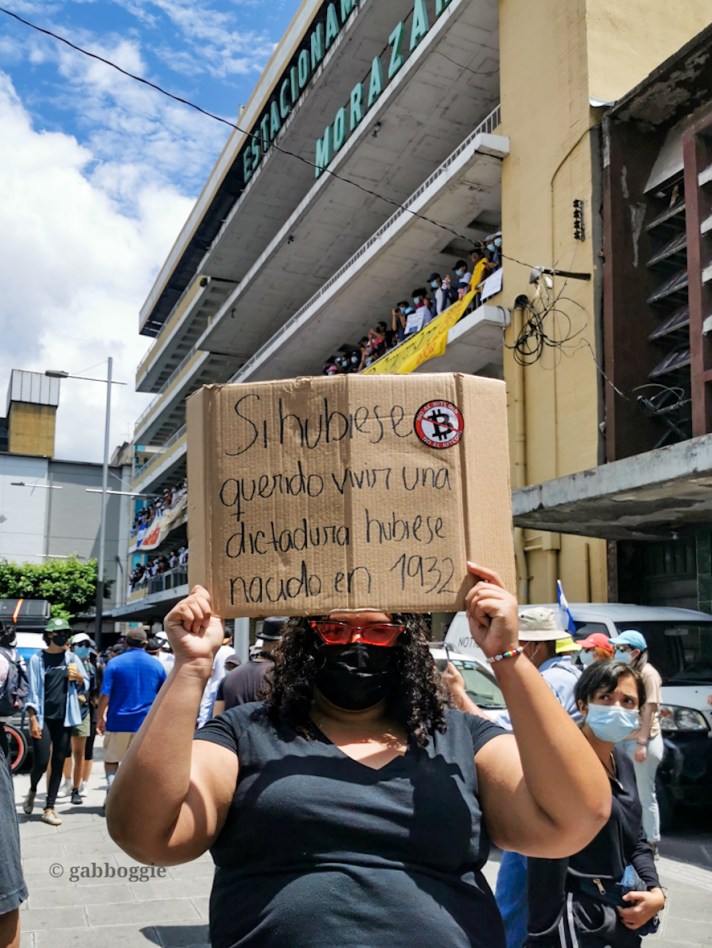 ESTACIONAM
MORAZÁ
Si hubiese
querido vivir una
dictadura hubiese
nacido en 1932
© gabboggie